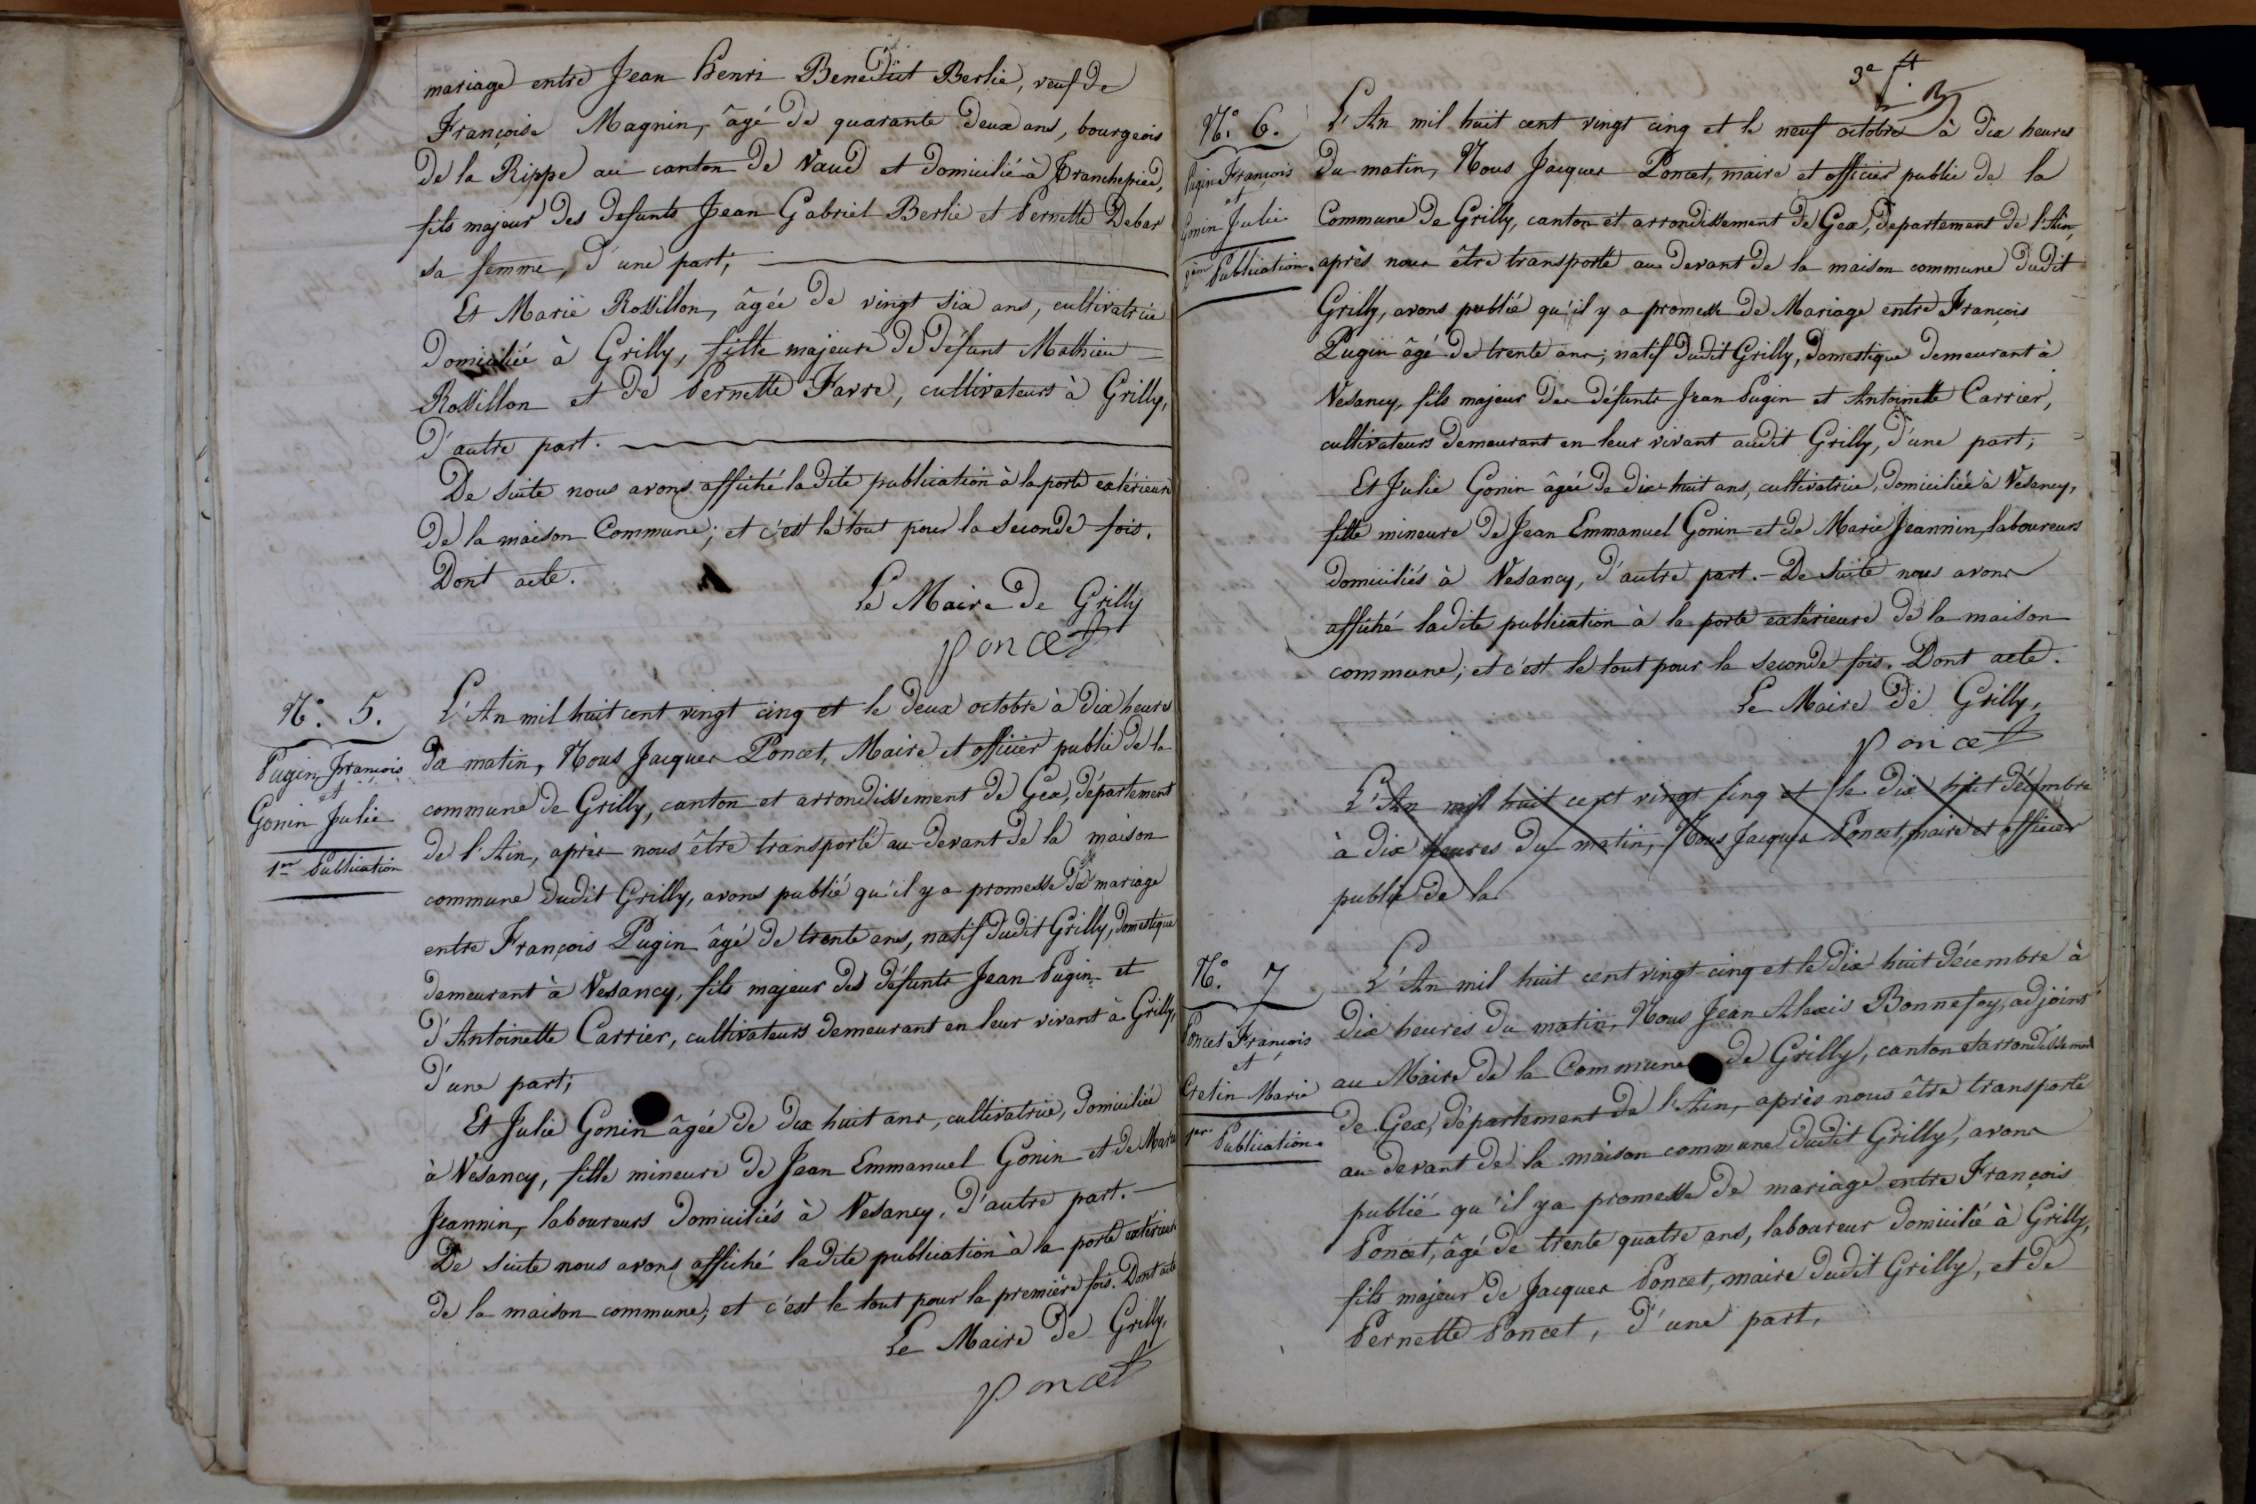 mariage entre Jean Henri Benedict Berlie, veuf de
Françoise Magnin, âgé de quarante deux ans, bourgeois
de la Rippe au canton de Vaud et domicilié à Tranchepied,
fils majeur des defunts Jean Gabriel Berlie et Pernette Debar
sa femme, d'une part;
Et Marie Rossillon, âgée de vingt six ans, cultivatrice
domiciliée à Grilly, fille majeure de défunt Mathieu
Rossillon et de Pernette Favre, cultivateurs à Grilly,
d'autre part.
De suite nous avons affiché ladite publication à la porte extérieure
de la maison Commune; et c'est le tout pour la seconde fois.
Dont acte.
Le Maire de Grilly
Poncet
N.° 5.
Pugin François
et
Gonin Julie
1.re Publication
L'An mil huit cent vingt cinq et le deux octobre à dix heures
du matin, Nous Jacques Poncet, Maire et officier public de la
commune de Grilly, canton et arrondissement de Gex, département
de l'Ain, après nous être transporté au-devant de la maison
commune dudit Grilly, avons publié qu'il y a promesse de mariage
entre François Pugin âgé de trente ans, natif dudit Grilly, domestique
demeurant à Vesancy, fils majeur des défunts Jean Pugin et
d'Antoinette Carrier, cultivateurs demeurant en leur vivant à Grilly,
d'une part;
Et Julie Gonin âgée de dix huit ans, cultivatrice, domiciliée
à Vesancy, fille mineure de Jean Emmanuel Gonin et de Marie
Jeannin, laboureurs domiciliés à Vesancy, d'autre part.
De suite nous avons affiché ladite publication à la porte extérieure
de la maison commune; et c'est le tout pour la première fois. Dont acte
Le Maire de Grilly,
Poncet
3e f.t
N.° 6.
Pugin François
et
Gonin Julie
2.em Publication.
L'An mil huit cent vingt cinq et le neuf octobre à dix heures
du matin, Nous Jacques Poncet, maire et officier public de la
Commune de Grilly, canton et arrondissement de Gex, departement de l'Ain,
après nous être transporté au devant de la maison commune dudit
Grilly, avons publié qu'il y a promesse de Mariage entre François
Pugin âgé de trente ans; natif dudit Grilly, domestique demeurant à
Vesancy, fils majeur des défunts Jean Pugin et Antoinette Carrier,
cultivateurs demeurant en leur vivant audit Grilly, d'une part;
Et Julie Gonin âgée de dix-huit ans, cultivatrice, domiciliée à Vesancy,
fille mineure de Jean Emmanuel Gonin et de Marie Jeannin, laboureurs
domiciliés à Vesancy, d'autre part. - De suite nous avons
affiché ladite publication à la porte extérieure de la maison
commune; et c'est le tout pour la seconde fois. Dont acte.
Le Maire de Grilly,
Poncet
L'An mil huit cent vingt cinq et le dix huit décembre
à dix heures du matin, Nous Jacques Poncet, maire et officier
public de la
N.° 7
Poncet François
et
Cretin Marie
1.ere Publication.
L'An mil huit cent vingt-cinq et le dix huit décembre à
dix heures du matin, Nous Jean Alexis Bonnefoy, adjoint
au Maire de la Commune de Grilly, canton et arrondissement
de Gex, département de l'Ain, après nous être transporté
au devant de la maison commune dudit Grilly, avons
publié qu'il y a promesse de mariage entre François
Poncet, âgé de trente quatre ans, laboureur domicilié à Grilly,
fils majeur de Jacques Poncet, maire dudit Grilly, et de
Pernette Poncet, d'une part,